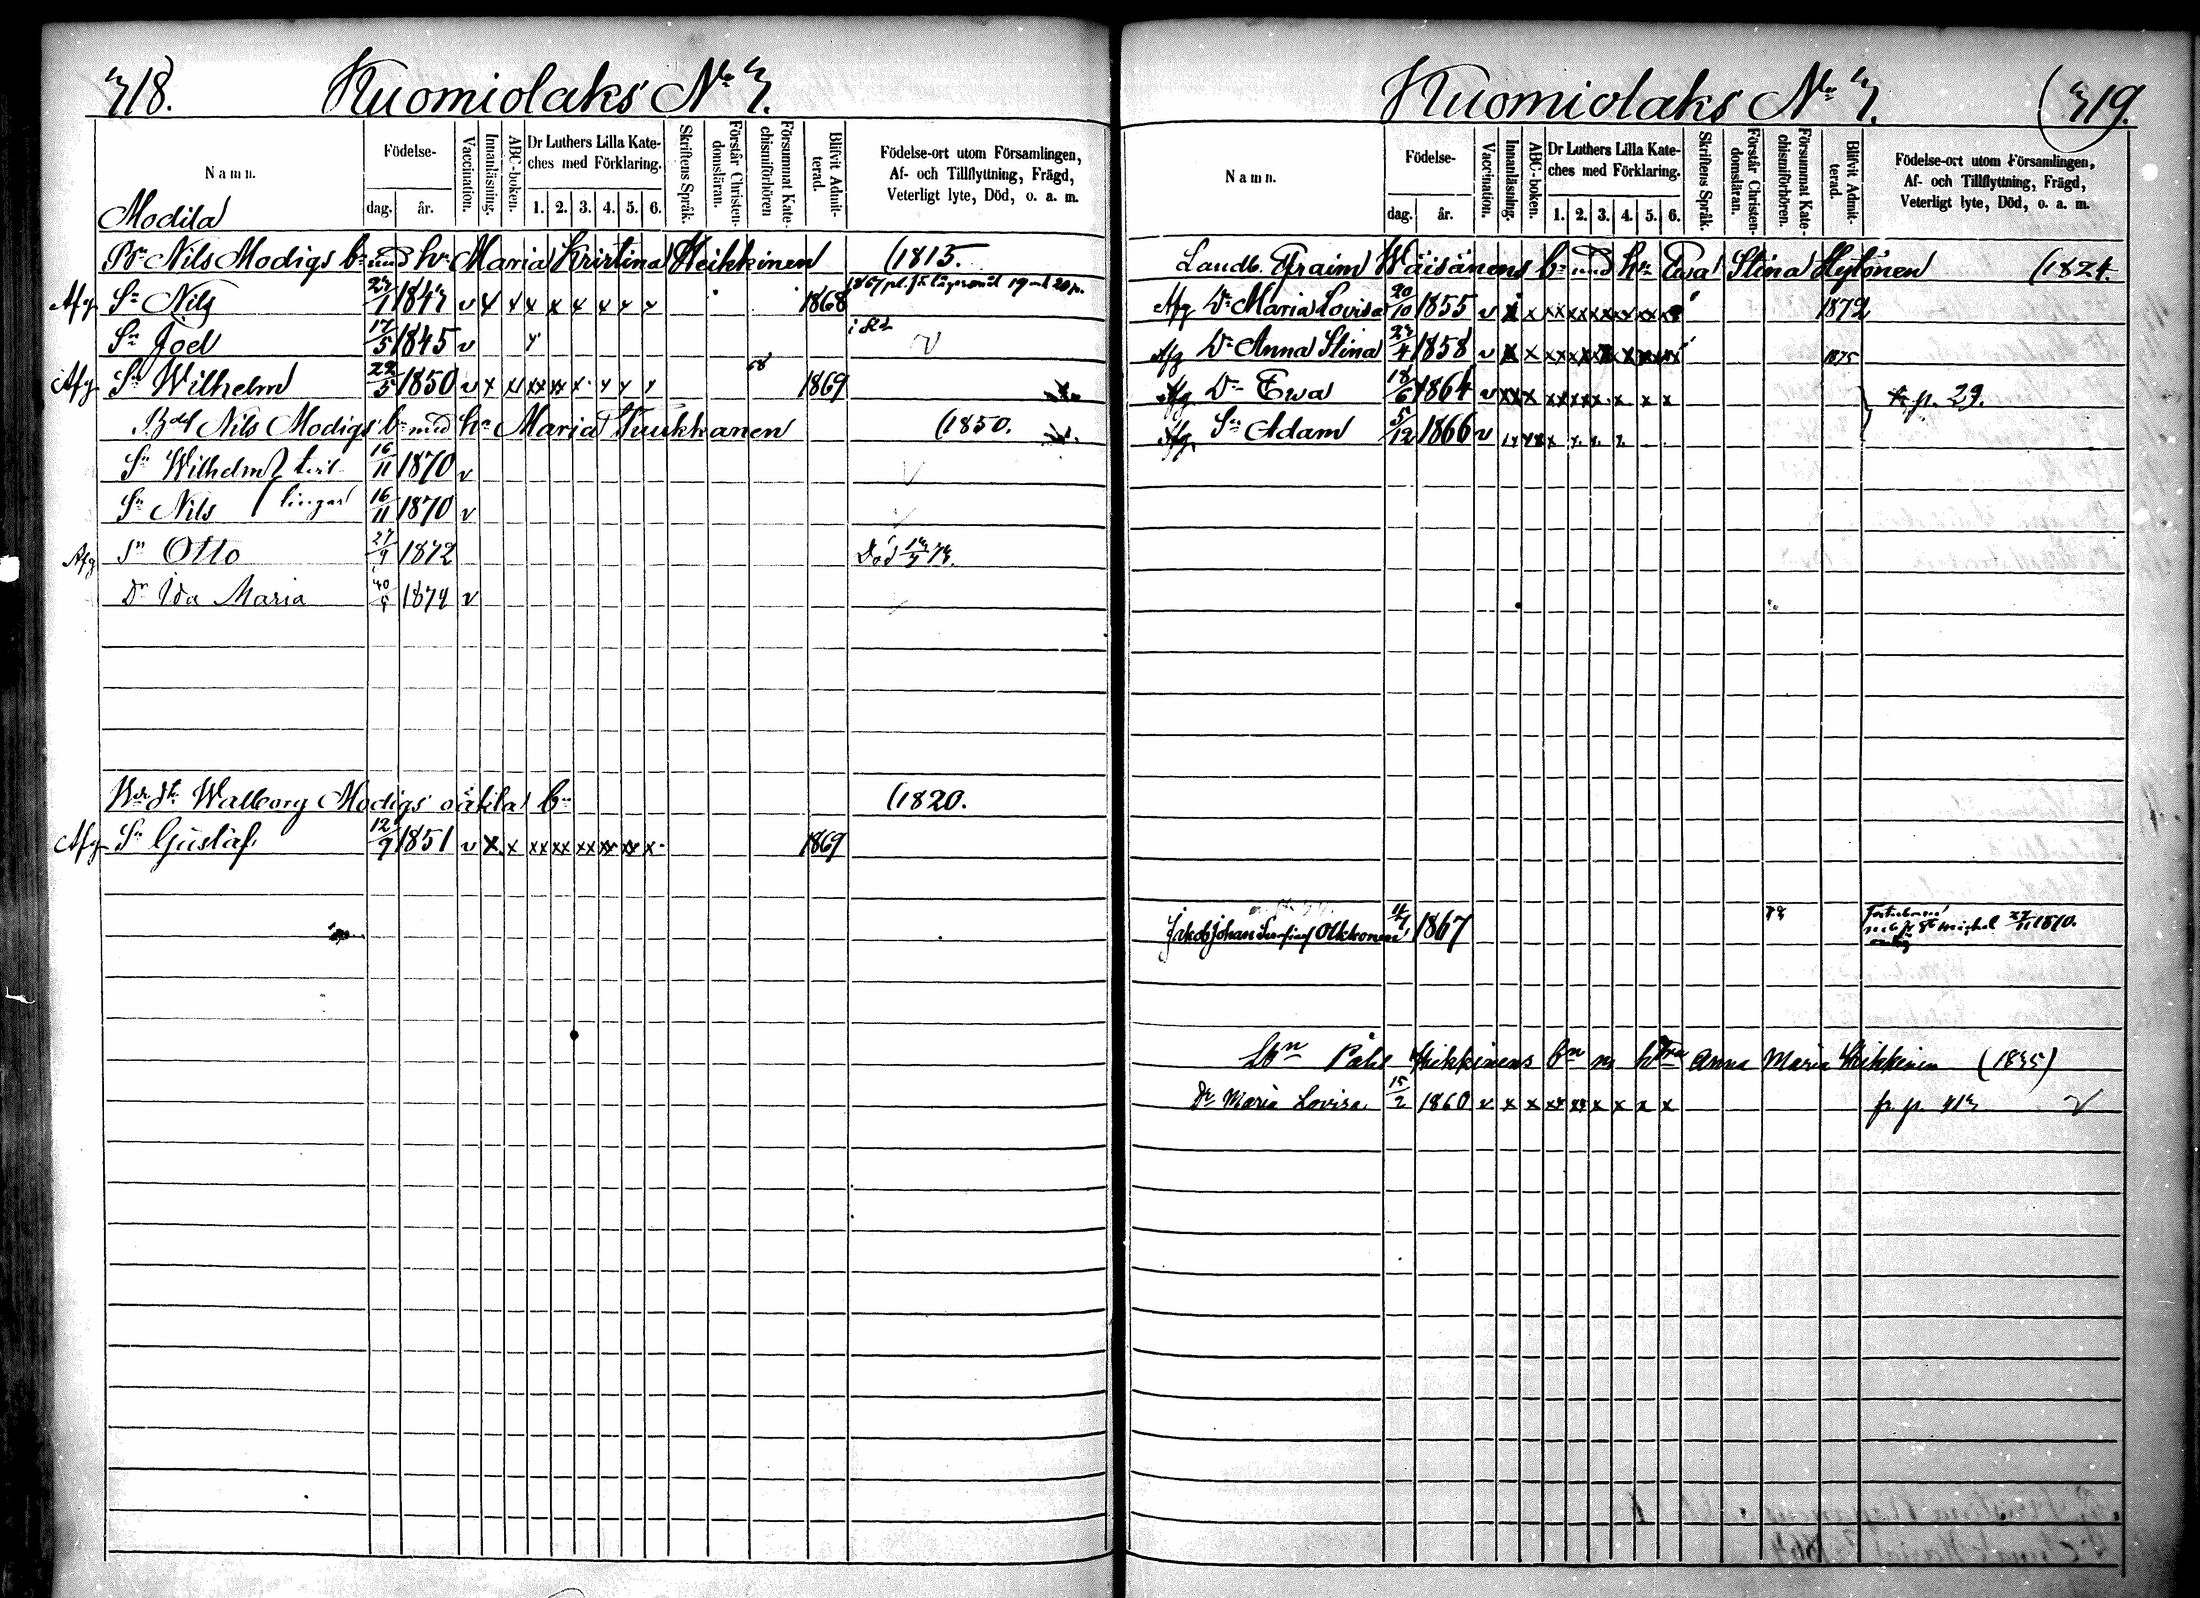 318.
Kuomiolaks No 3.
Namn.
Födelse-
dag.
år.
Vaccination.
Innanläsning.
ABC-boken.
Dr Luthers Lilla Kate-
ches med Förklaring.
1. 2. 3. 4. 5. 6.
Skriftens Språk.
Förstår Christen-
domsläran.
Försummat Kate-
chismiförhören
Blifvit Admit-
terad.
Födelse-ort utom Församlingen,
Af- och Tillflyttning, Frägd,
Veterligt lyte, Död, o. a. m.
Modila
Nils Modigs bn med hu Maria Kristina Heikkinen (1815.
Afg Sn Nils 23/1 1843 v x x x x x x x x 1868
Sn Joel 17/5 1845 v x v
68
Afg Sn Wilhelm 22/5 1850 v x xx xx xx x x x x 1869
Nils Modigs bn med hu Maria Kuukkanen (1850.
Sn Wilhelm } tvil 16/11 1870 v v
Sn Nils } lingar 16/11 1870 v
Afg Sn Otto 27/9 1872 Död 73.
Dr Ida Maria 1874 v
Walborg Modigs oäkta bn (1820.
Afg Sn Gustaf 12/9 1851 v x x xx xx xx xx xx x 1869
Kuomiolaks No 3.
(319.
Namn.
Födelse-
dag.
år.
Vaccination.
Innanläsning.
ABC-boken.
Dr Luthers Lilla Kate-
ches med Förklaring.
1. 2. 3. 4. 5. 6.
Skriftens Språk.
Förstår Christen-
domsläran.
Försummat Kate-
chismiförhören.
Blifvit Admit-
terad.
Födelse-ort utom Församlingen,
Af- och Tillflyttning, Frägd,
Veterligt lyte, Död, o. a. m.
Landb. Efraim Wäisänens bn med hu Ewa Stina Hytönen (1824.
Afg Dr Maria Lovisa 20/10 1855 v x x xx xx xx x xx 1872
Afg Dr Anna Stina 23/4 1858 v x x xx xx x x x xx 1875
Afg Dr Ewa 18/6 1864 v xx x xx xx xx x x x } p. 29.
Afg Sn Adam 5/12 1866 v x xx x x x x
Jakob Johan Olkkonen 1867 73 St Michel 1870.
Lbn Påhl Heikkinens bn m hu Anna Maria Heikkinen (1835)
Dr Maria Lovisa 15/2 1860 v x x xx xx x x x x fr p. 413 v